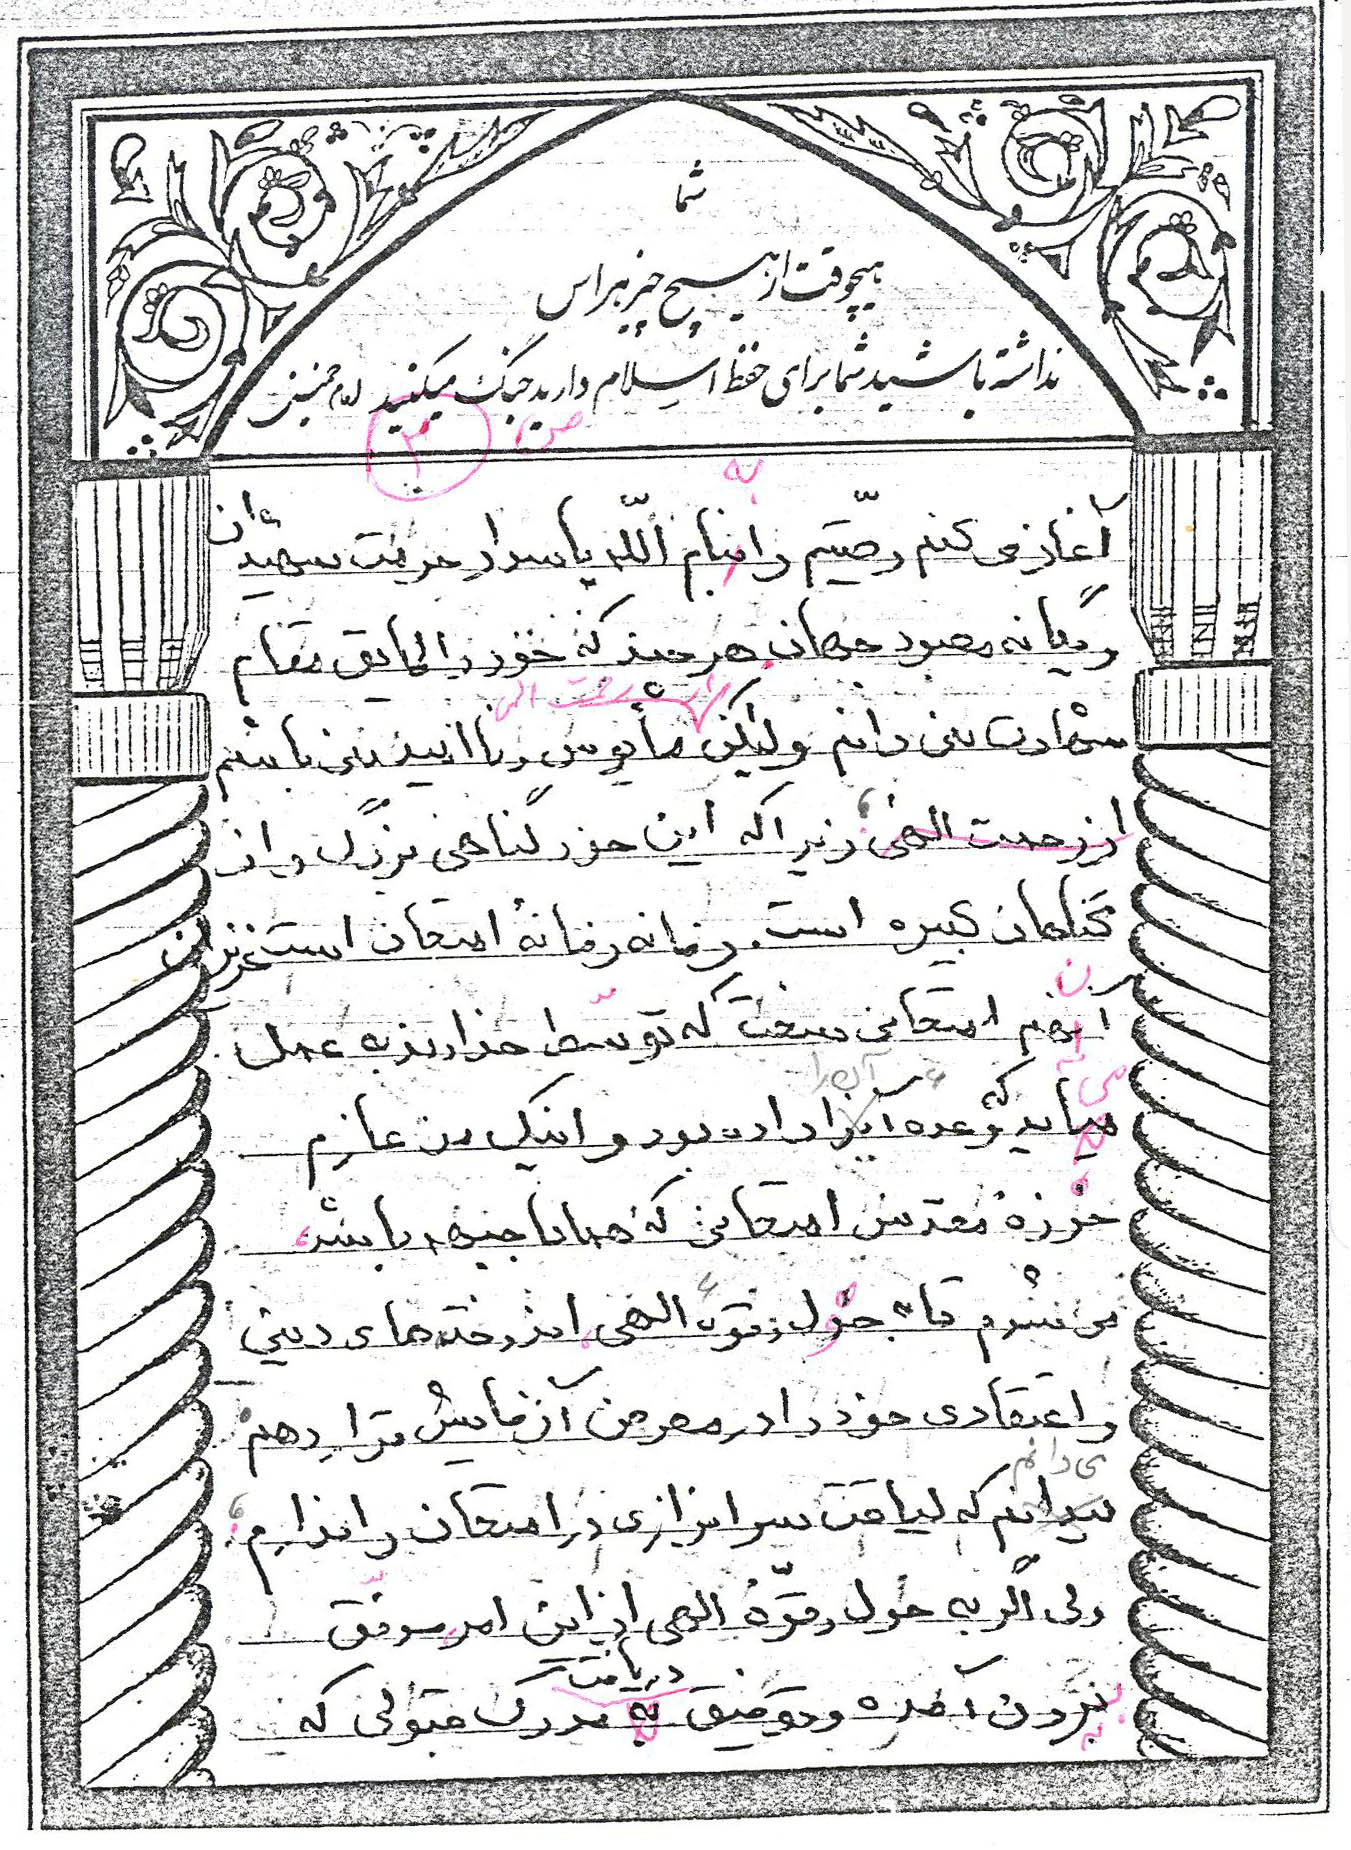 شما
هیچوقت از هیچ چیز هراس
نداشته باشید شما برای حفظ اسلام دارید جنگ میکنید امام خمینی
ص ۳
به
آغاز می کنم وصیتم را بنام اللّه پاسدار حرمت شهیدان
و یگانه معبود جهان هر چند که خود را لایق مقام
از رحمت الهی
شهادت نمی دانم ولیکن مأیوس و ناامید نمی باشم
از رحمت الهی زیرا که این خود گناهی بزرگ و از
گناهان کبیره است. زمانه زمانهٔ امتحان است عزیزان
آنهم امتحانی سخت که توسّط خداوند به عمل
آن را
میاید که وعده آنرا داده بود و اینک من عازم
حوزهٔ مقدس امتحانی که همانا جبهه باشد،
می شوم تا به حول و قوه الهی اندوخته های دینی
و اعتقادی خود را در معرض آزمایش قرار دهم
می دانم
میدانم که لیاقت سرافرازی در امتحان را ندارم
ولی اگر به حول و قوّهٔ الهی از این امر موفّق
دریافت
بیرون آمده و توفیق به مدرک قبولی که